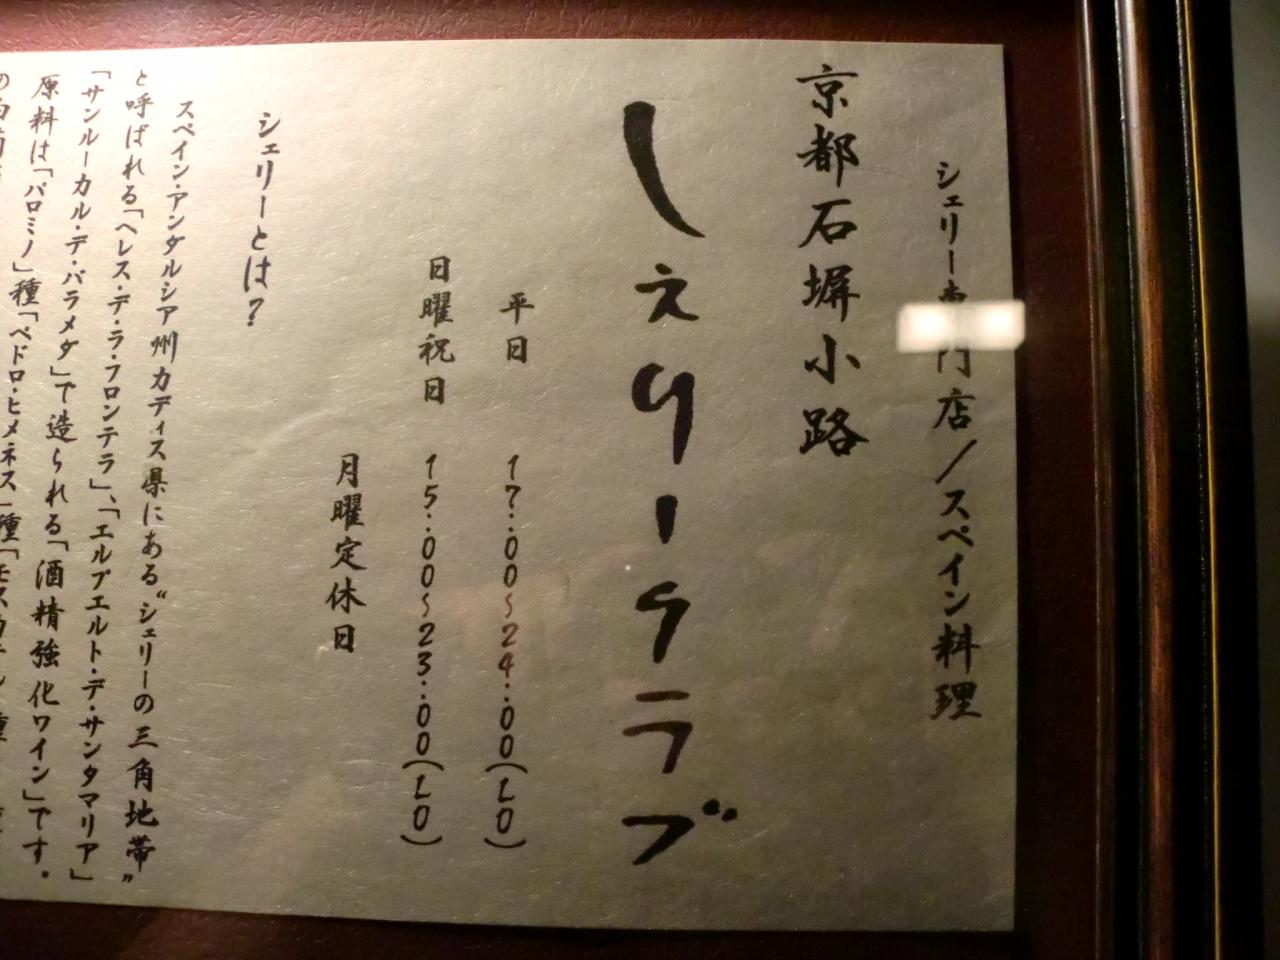 シェリー専門店／スペイン料理
京都石塀小路
しぇりークラブ
平日 17:00~24:00(LO)
日曜祝日 15:00~23:00(LO)
月曜定休日
シェリーとは?
スペイン・アンダルシア州カディス県にある"シェリーの三角地帯"
と呼ばれる「ヘレス・デ・ラ・フロンテラ」、「エルプエルト・デ・サンタマリア」
「サンルーカル・デ・バラメダ」で造られる「酒精強化ワイン」です。
原料は「パロミノ」種「ペドロ・ヒメネス」種「モスカテル」種